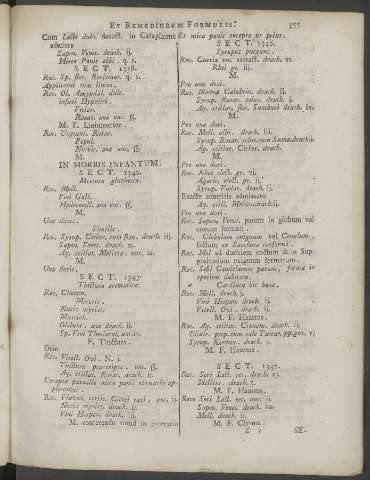 ET REMEDIORUM FORMULIS.
355
Cum Lacte dulc. decoct. in Cataplasma
admisce
Sapon. Venet. drach. ij.
Micæ Panis albi. q. s.
SECT. 1338.
Rec. Sp. flor. Rorismar. q. s.
Applicetur cum linteo.
Rec. Ol. Amygdal. dulc.
infusi Hyperici.
Violar.
Rosar. ana unc. ß.
M. F. Linimentum.
Rec. Unguent. Rosar.
Popul.
Nervin. ana unc. ß.
M.
IN MORBIS INFANTUM.
SECT. 1342.
Mixtura glutinosa.
Rec. Mell.
Vini Gall.
Hydromell. ana unc. ß.
M.
Una dosis.
Similis.
Rec. Syrup. Cichor. cum Rheo. drach. iij.
Sapon. Venet. drach. ss.
Aq. stillat. Melissæ. unc. ss.
M.
Una dosis.
SECT. 1343.
Tinctura aromatica.
Rec. Cinnam.
Maceris.
Nucis myrist.
Mastich.
Olibani, ana drach. ij.
Sp. Vini Theriacal. unc. iv.
F. Tinctura.
Dein
Rec. Vitell. Ovi. N. j.
Tincturæ præscriptæ. unc. ß.
Aq. stillat. Rosar. drach. ij.
Excepta pauxillo mica panis stomacho applicentur.
Rec. Flaved. cortic. Citrei rati. unc. ij.
Nucis myrist. drach. ij.
Vini Hispan. drach. ij.
M. contundendo simul in mortario
Et mica panis excepta ut prius.
SECT. 1346.
Syrupus purgans.
Rec. Cassiæ rec. extract. drach. ss.
Rhei gr. iij.
M.
Pro una dosi.
Rec. Mannæ Calabrin. drach. ij.
Syrup. Rosar. solut. drach. j.
Aq. stillat. flor. Sambuci drach. iv.
M.
Pro una dosi.
Rec. Mell. albi. drach. iij.
Syrup. Rosar. solut. cum Senna. drach. j.
Aq. stillat. Cichor. drach.
M.
Pro una dosi.
Rec. Rhei elect. gr. vj.
Agaric. elect. gr. iij.
Syrup. Violar. drach. ij.
Exacte contritis admisceto
Aq. still. Meliss. drach. ij.
Pro una dosi.
Rec. Sapon. Venet. parum in globum vel
ovulum formati.
Rec. Globulum exiguum vel Conulum,
factum ex Saccharo conformi.
Rec. Mel ad duritiem coctum &amp; in Suppositorium exiguum formatum.
Rec. Sebi Candelarum parum, forma in
speciem dubiæ.
Cardiaca hic bona.
Rec. Mell. drach. j.
Vini Hispan. drach. ij.
Vitell. Ovi. drach. ij.
M. F. Haustus.
Rec. Aq. stillat. Cinnam. drach. ij.
Elixir. propr. cum sale Tartar. pp. gut. v.
Syrup. Kermes. drach. j.
M. F. Haustus.
SECT. 1347.
Rec. Seri Lact. rec. drach. vj.
Mellis. drach. j.
M. F. Haustus.
Rec. Seri Lact. rec. unc. ij.
Sapon. Venet. drach. ss.
Mell. drach. ij.
M. F. Clysma.
Z 2
SE-